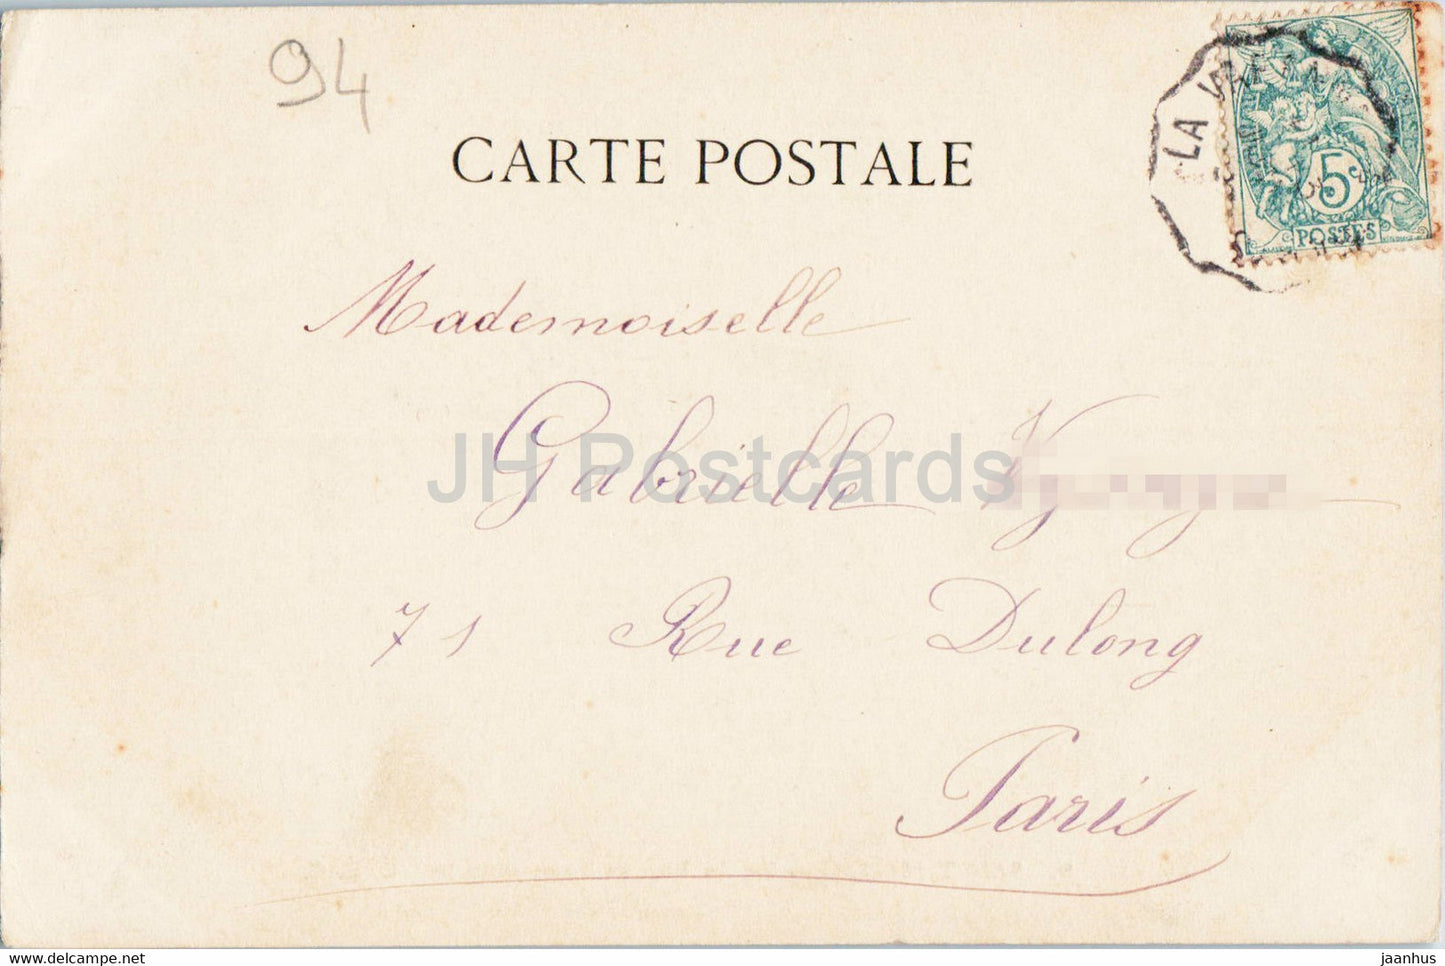 94
CARTE POSTALE
LA
5c
POSTES
Mademoiselle
Gabrielle
JH Postcards
71 Rue Dulong
Paris
www.delcampe.net
jaanhus